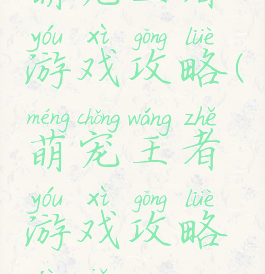 yóu xì gōng lüè
游戏攻略(
méng chǒng wáng zhě
萌宠王者
yóu xì gōng lüè
游戏攻略